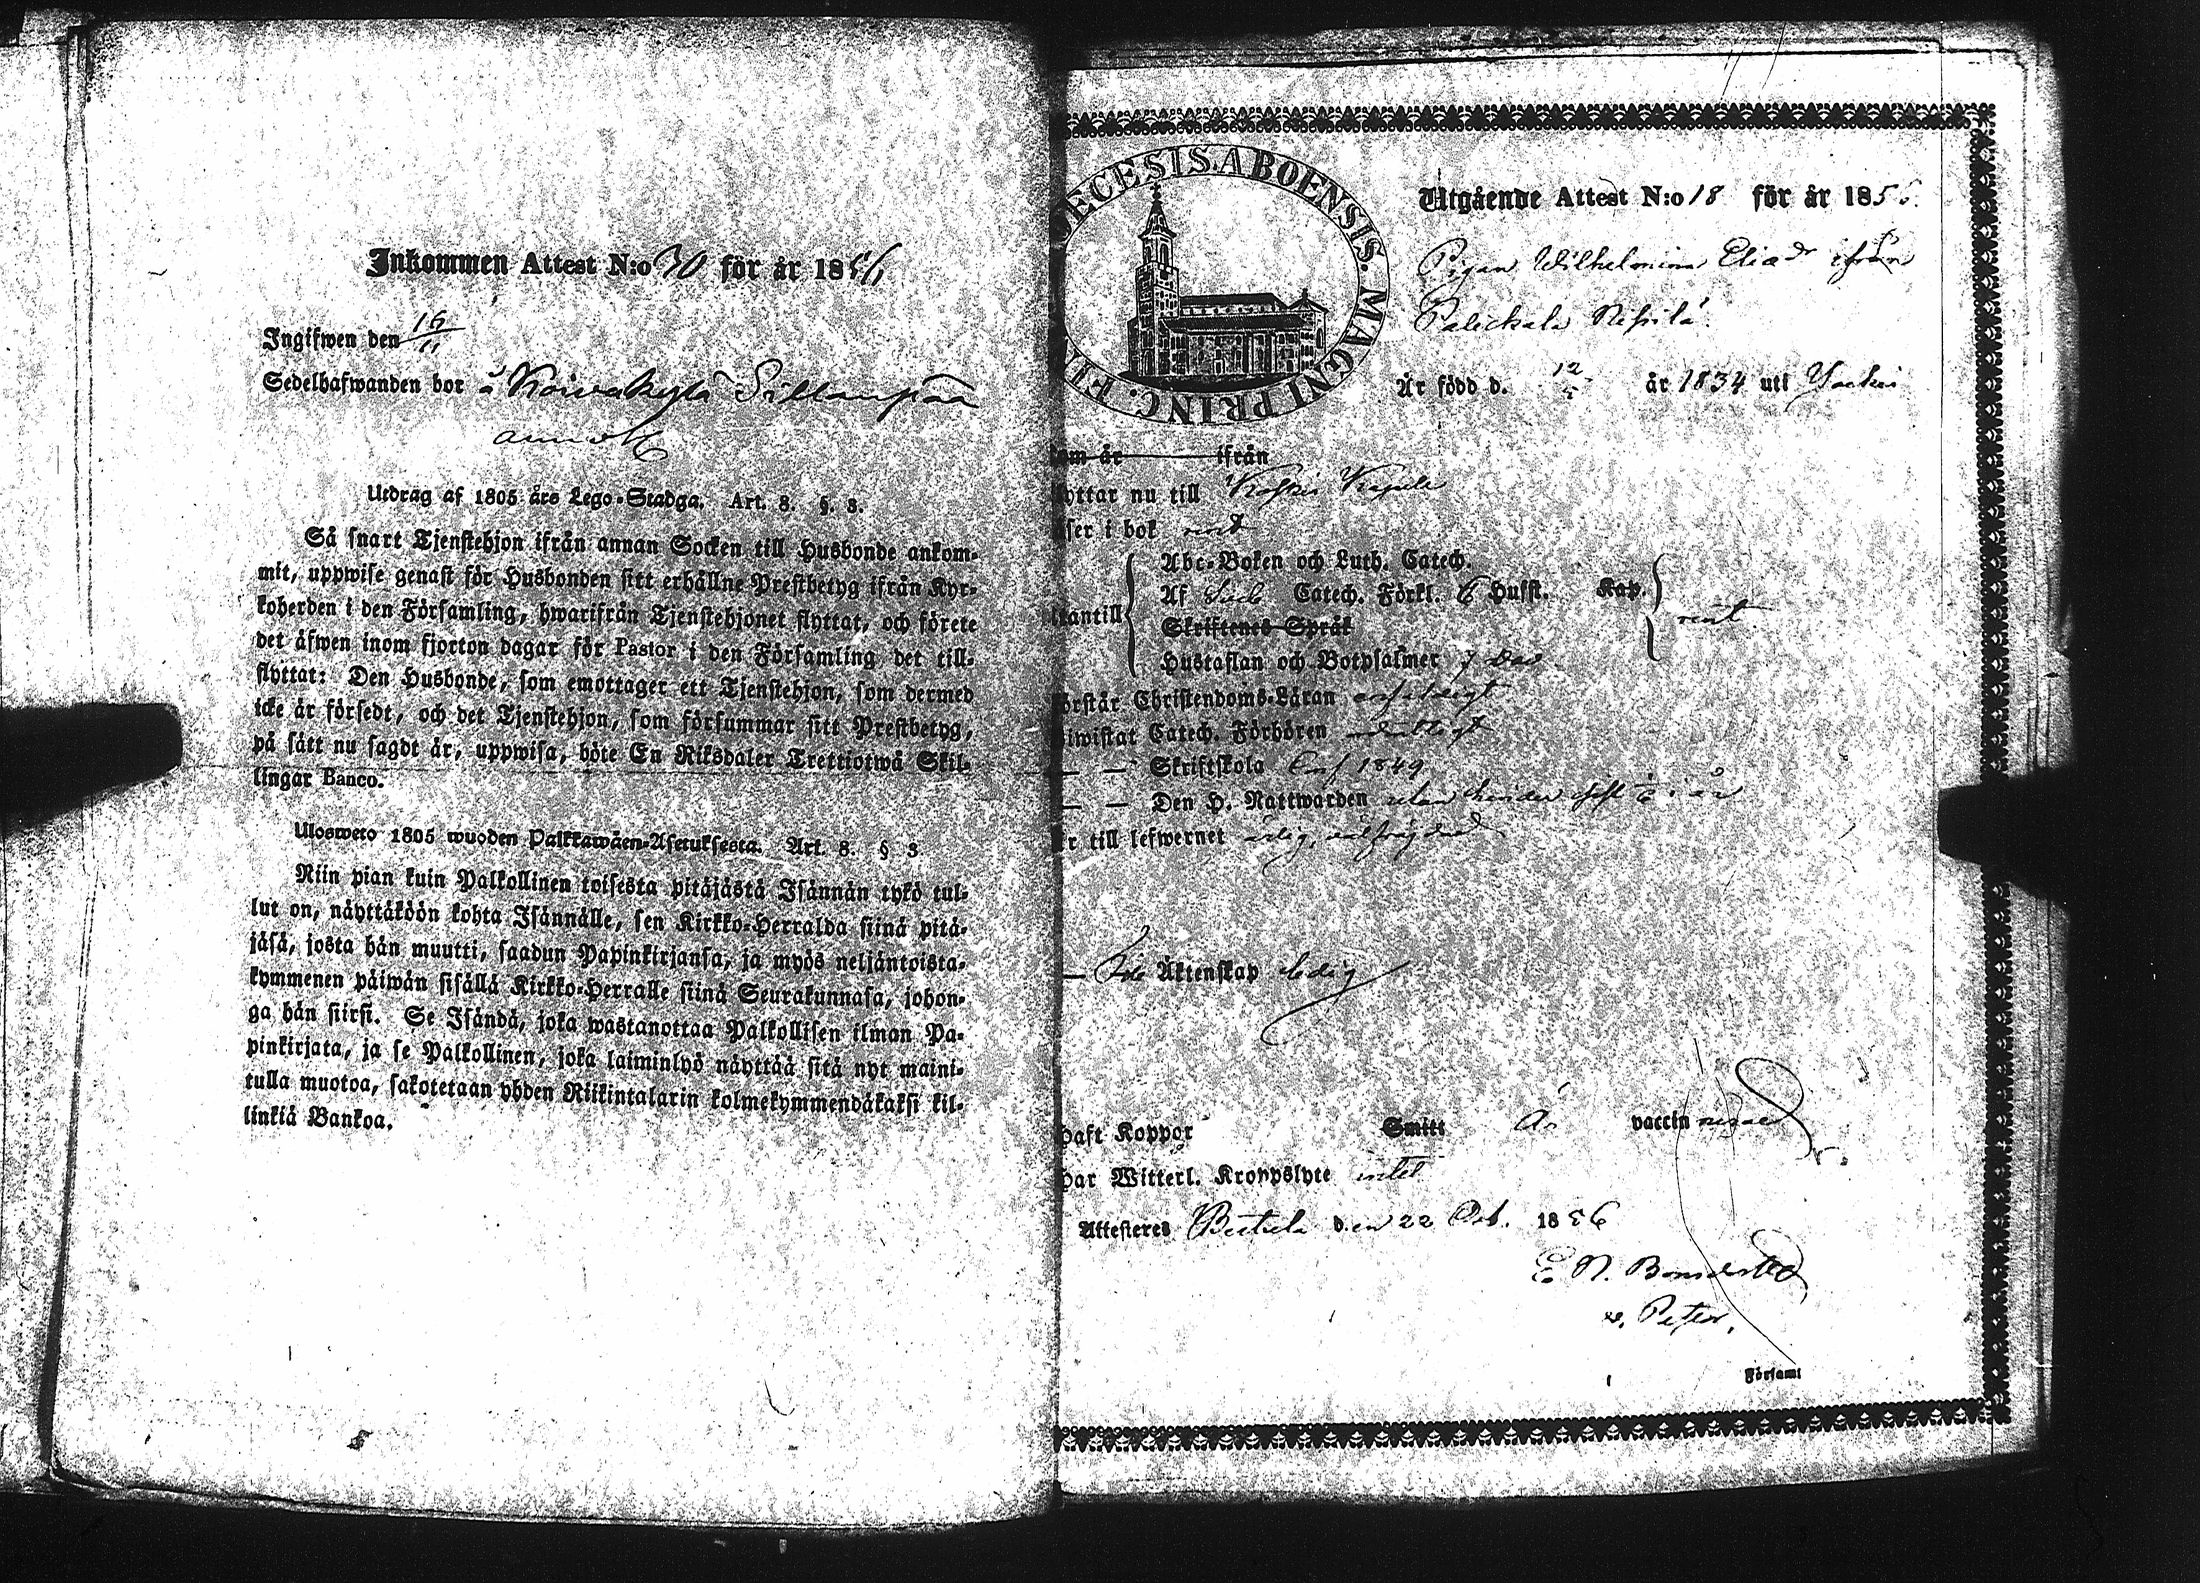 Inkommen Attest N:o 30 för år 1856
Ingifwen den 16/11
Sedelhafwanden bor å Koivukylä Sillanpää
Utdrag af 1805 års Lego-Stadga. Art. 8. §. 3.
Så snart Tjenstehjon ifrån annan Socken till Husbonde ankom-
mit, uppwise genast för Husbonden sitt erhållne Prestbetyg ifrån Kyr-
koherden i den Församling, hwarifrån Tjenstehjonet flyttat, och förete
det äfwen inom fjorton dagar för Pastor i den Församling det till-
flyttat: Den Husbonde, som emottager ett Tjenstehjon, som dermed
icke är försedt, och det Tjenstehjon, som försummar sitt Prestbetyg,
på sätt nu sagdt är, uppwisa, böte En Riksdaler Trettiotwå Skil-
lingar Banco.
Ulosweto 1805 wuoden Palkkawäen-Asetuksesta. Art. 8. § 3.
Niin pian kuin Palkollinen toisesta pitäjästä Isännän tykö tul-
lut on, näyttäköön kohta Isännälle, sen Kirkko-Herralda siinä pitä-
jäsä, josta hän muutti, saadun Papinkirjansa, ja myös neljäntoista-
kymmenen päiwän sisällä Kirkko-Herralle siinä Seurakunnasa, johon-
ga hän siirsi. Se Isändä, joka wastanottaa Palkollisen ilman Pa-
pinkirjata, ja se Palkollinen, joka laiminlyö näyttää sitä nyt maini-
tulla muotoa, sakotetaan yhden Riikintalarin kolmekymmendäkaksi kil-
linkiä Bankoa.
DECESIS. ABOENSIS. MAGNI PRINC. FI
Utgående Attest N:o 18 för år 1856.
Pigan Wilhelmina Eliad. ifrån
Är född d. 12/5 år 1834 uti
om år ifrån
yttar nu till Koskis Kapell
ser i bok rent
Abc-Boken och Luth. Catech.
Af Catech. Förkl. 6 Husst. Kap.
tantill Skriftenes Språk rent
Hustaflan och Botpsalmer 7 Dav.
örstår Christendoms-Läran enfaldigt
iwistat Catech. Förhören
— — Skriftskola Conf 1849
— — Den H. Nattwarden utan hinder sist i år
r till lefwernet ärlig, välfrägdad
— Äktenskap ledig
haft Koppor Smitt Är vaccinerad
har Witterl. Kroppslyte intet
Attesteres den 22 Oct. 1856
E N. Bonsdorff
v. Pastor.
Församl